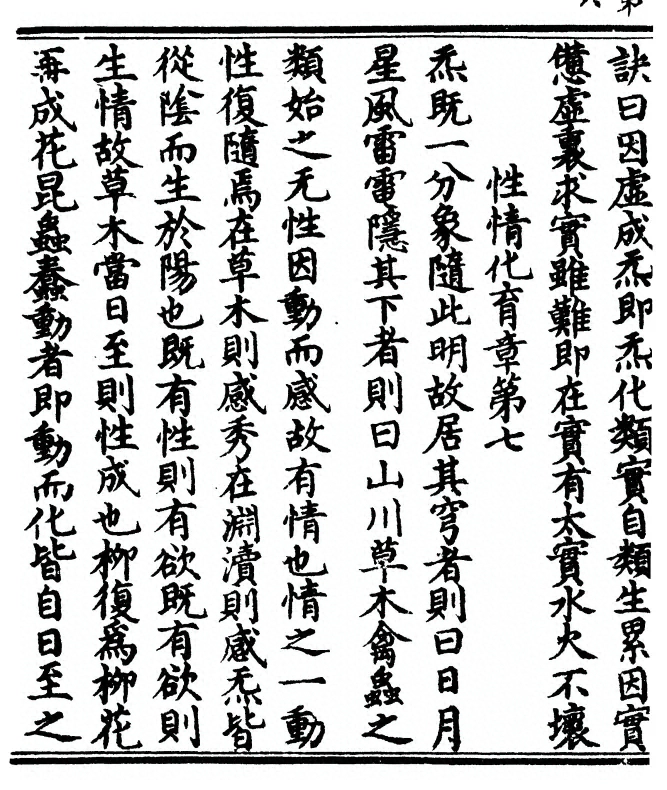 訣曰因虛成炁即炁化類實自類生累因實
憊虛裏求實雖難即在實有太實水火不壞
性情化育章第七
炁既一分象隨此明故居其穹者則曰日月
星風雷電隱其下者則曰山川草木禽蟲之
類始之无性因動而感故有情也情之一動
性復隨焉在草木則感秀在淵瀆則感炁皆
從陰而生於陽也既有性則有欲既有欲則
生情故草木當日至則性成也柳復爲柳花
再成花昆蟲蠢動者即動而化皆自日至之